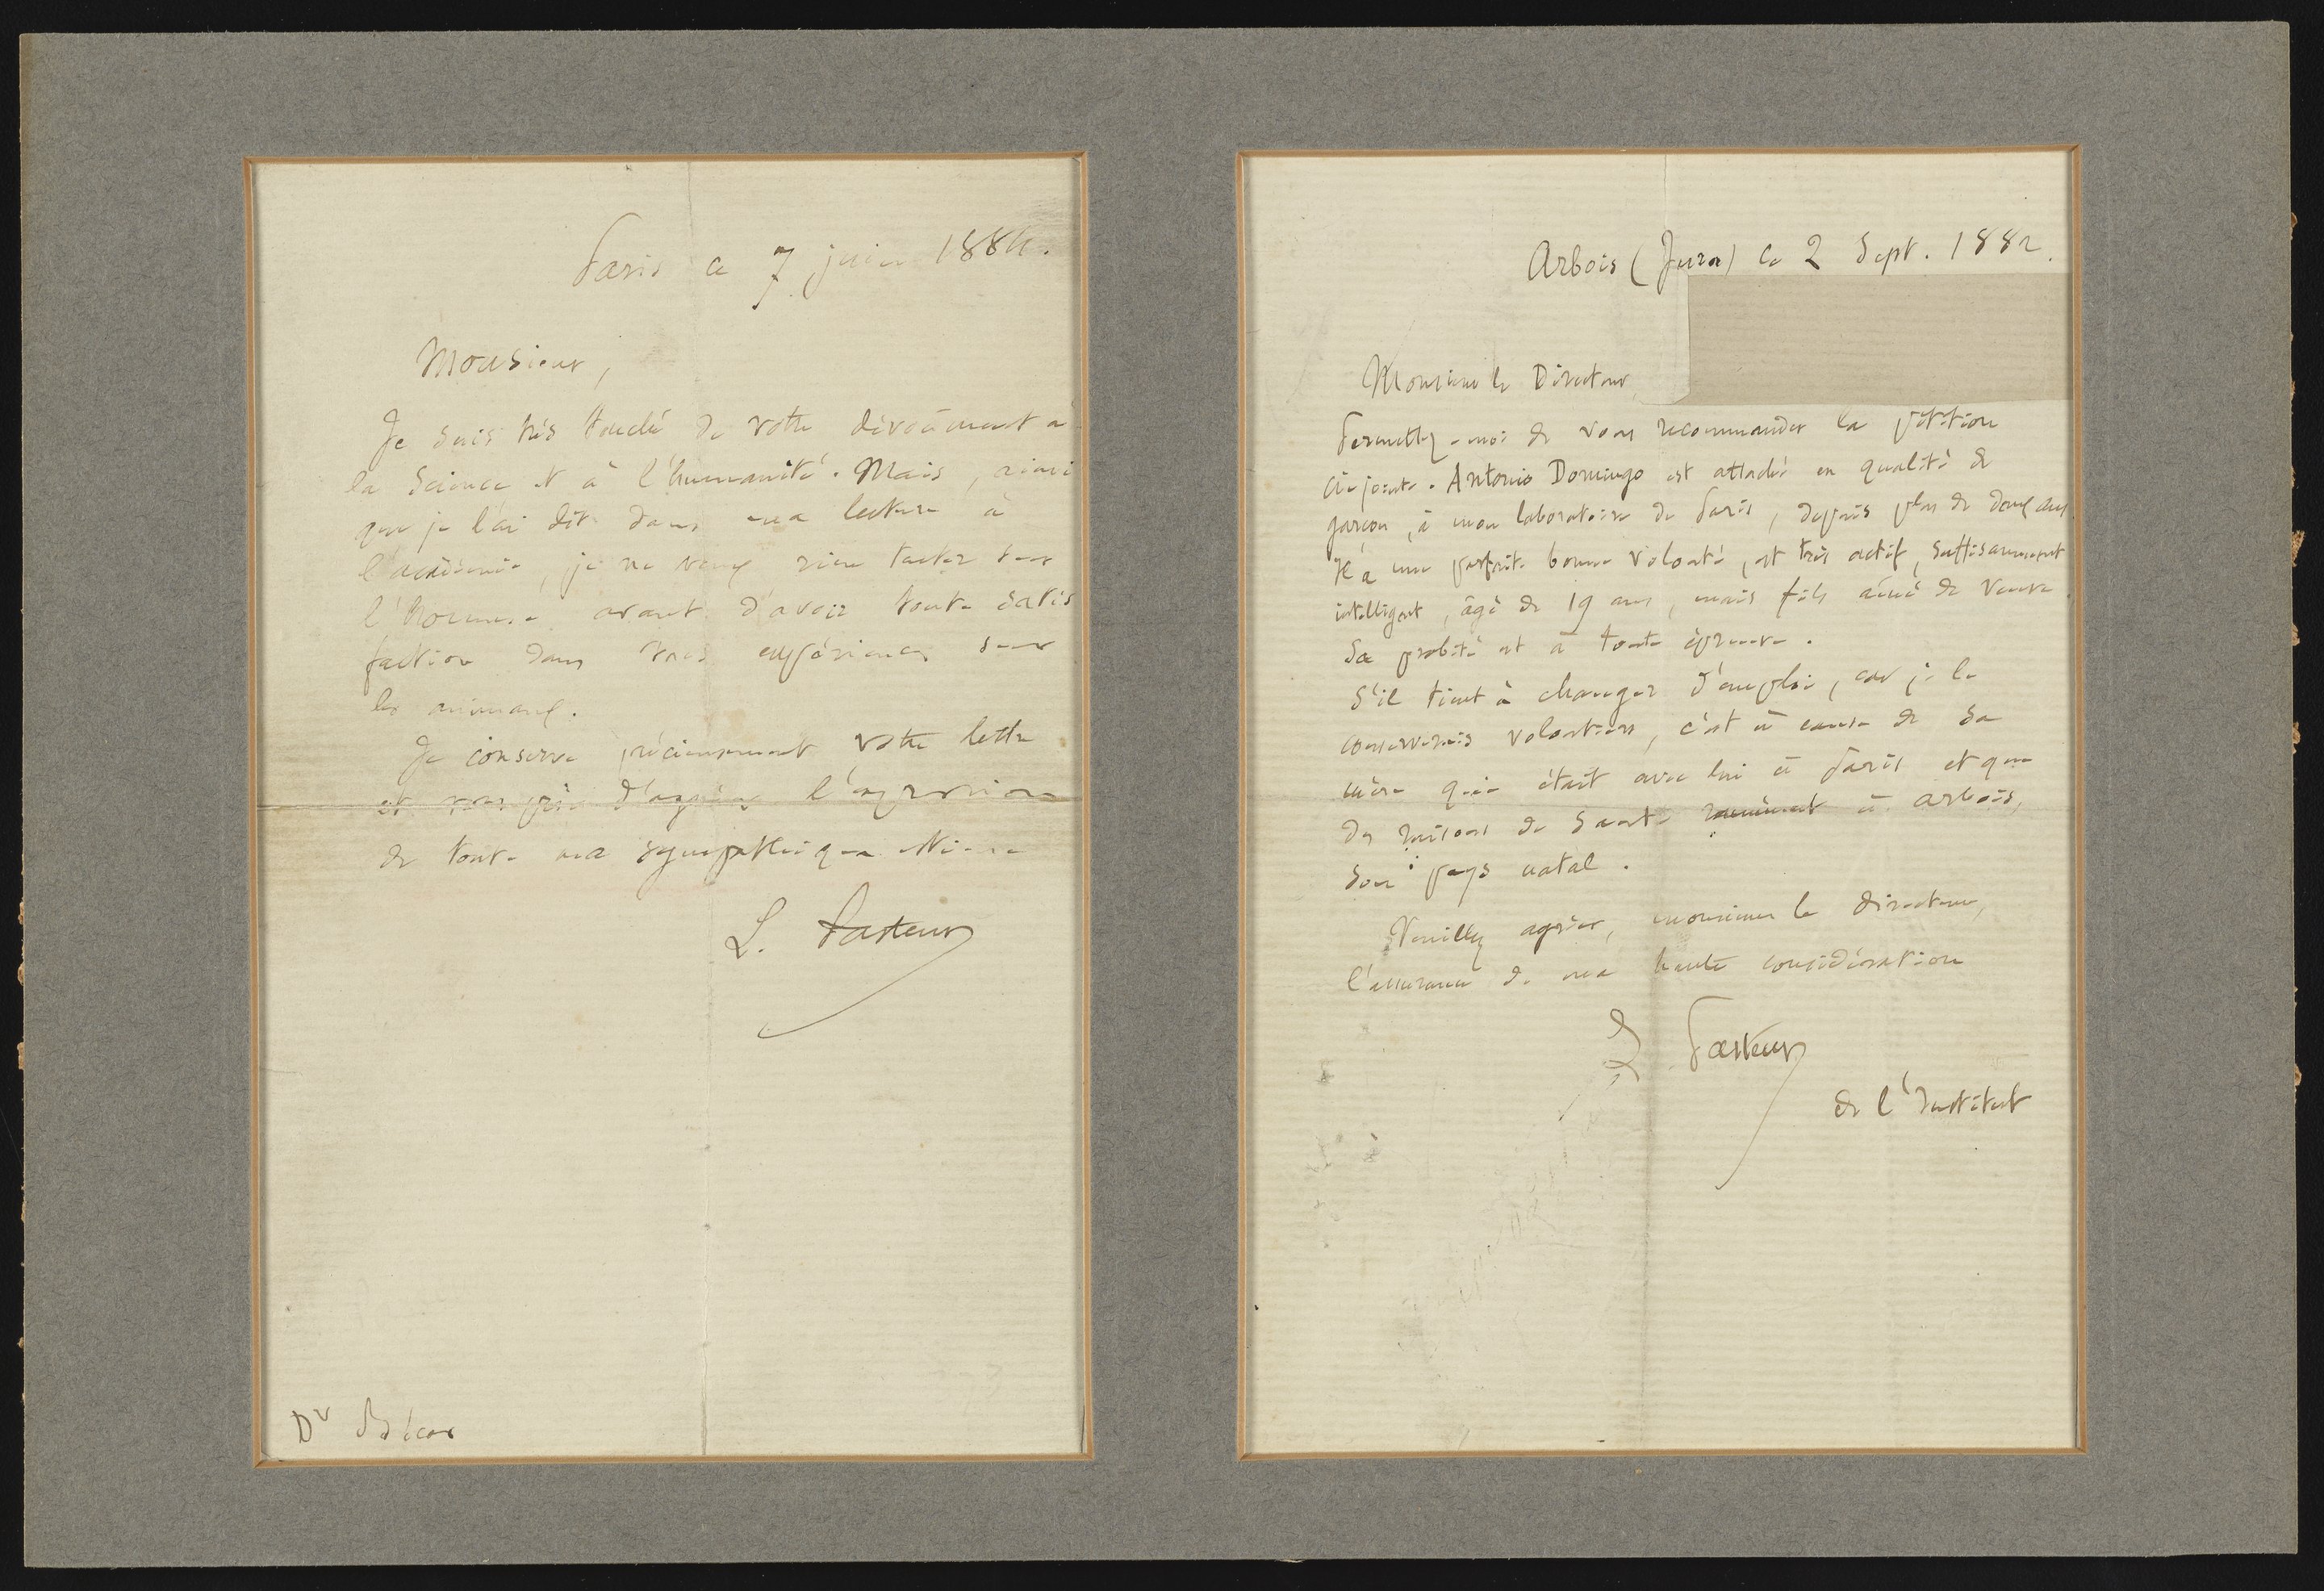 Paris ce 7 juin 1884.
Monsieur,
Je suis très touché de votre dévoûment à
la Science et à l'humanité. Mais, ainsi
que je l'ai dit dans ma lecture à
l'académie, je ne veux rien tenter sur
l'homme avant d'avoir toute satis
faction dans mes expériences sur
les animaux.
Je conserve précieusement votre lettre
et vous prie d'agréer l'expression
de toute ma sympathique estime
L. Pasteur
Dr
Arbois (Jura) ce 2 Sept. 1882.
Monsieur le Directeur,
Permettez-moi de vous recommander la pétition
ci-jointe. Antonio Domingo est attaché en qualité de
garçon, à mon laboratoire de Paris, depuis plus de deux ans.
Il a une parfaite bonne volonté, est très actif, suffisamment
intelligent, âgé de 19 ans, mais fils aîné de veuve.
Sa probité est à toute épreuve.
S'il tient à changer d'emploi, car je le
conserverais volontiers, c'est à cause de sa
mère qui était avec lui à Paris et que
des raisons de santé ramènent à Arbois,
son pays natal.
Veuillez agréer, monsieur le directeur,
l'assurance de ma haute considération
L Pasteur
de l'Institut